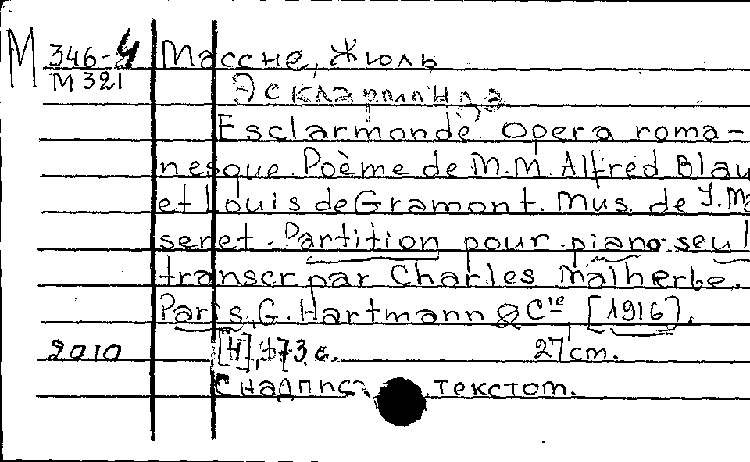 М 346-4 Массне, Жюль
М 321 Эсклармонда
Esclarmonde Opera roma-
nesque. Poème de M.M. Alfred Blau
et Louis de Gramont. Mus. de J. Mas
senet. Partition pour piano seul
transcr par Charles Malherbe.
Paris, G. Hartmann & Cie [1916].
2010 [4], 173 с. 27 cm.
С надпис. текстом.